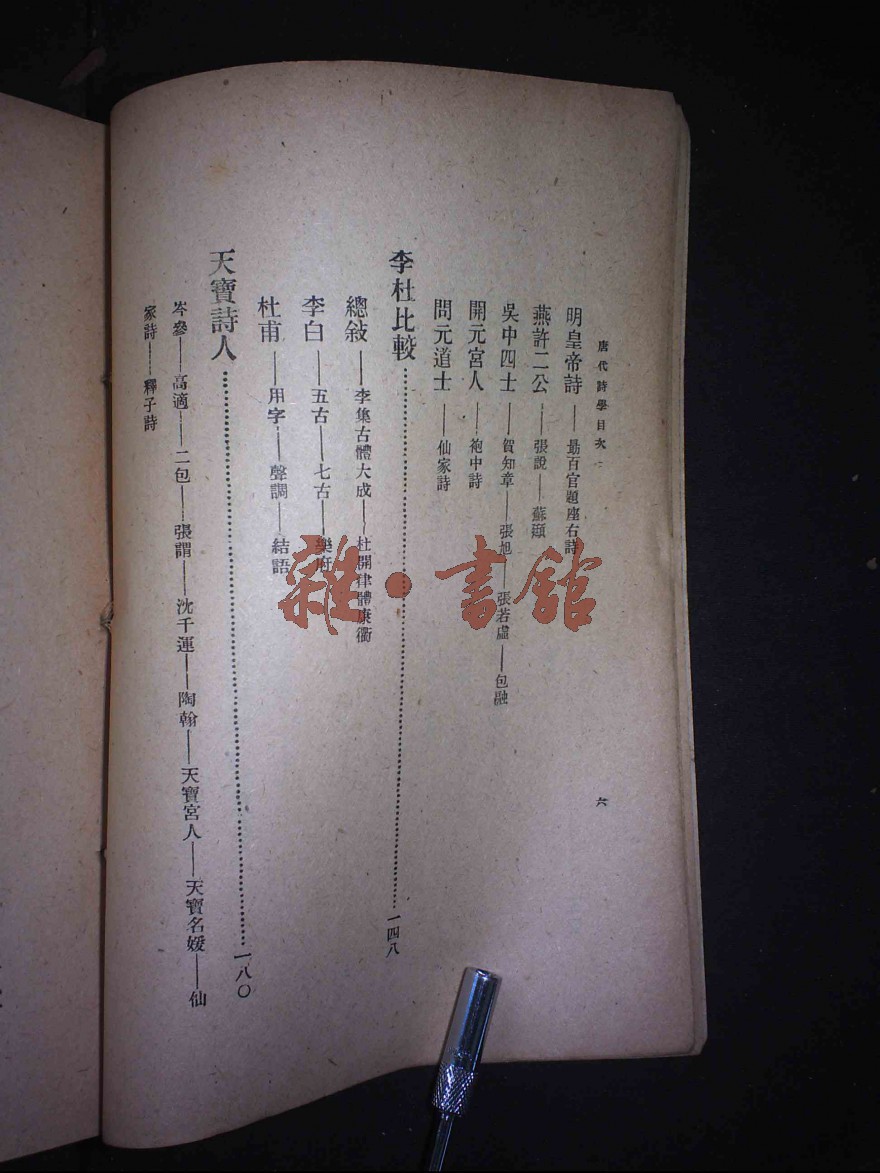 唐代詩學目次
六
明皇帝詩——勗百官題座右詩
燕許二公——張說——蘇頲
吳中四士——賀知章——張旭——張若虛——包融
開元宮人——袍中詩
問元道士——仙家詩
李杜比較……一四八
總敍——李集古體大成——杜開律體康衢
李白——五古——七古——樂府
杜甫——用字——聲調——結語
天寶詩人……一八〇
岑參——高適——二包——張謂——沈千運——陶翰——天寶宮人——天寶名媛——仙
家詩——釋子詩
雜·書館